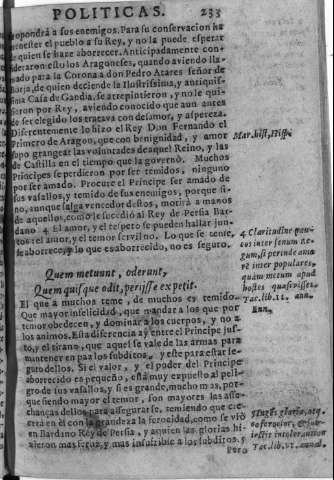 POLITICAS. 233
opondrà a sus enemigos. Para su conservacion ha
menester el pueblo a su Rey, y no la puede esperar
de quien se haze aborrecer. Anticipadamente con-
sideraron esto los Aragoneses, quando aviendo lla-
mado para la Corona a don Pedro Atares señor de
Borja, de quien deciende la Ilustrissima, y antiquis-
sima Casa de Gandia, se arrepintieron, y no le qui-
sieron por Rey, aviendo conocido que aun antes
de ser elegido los tratava con desamor, y aspereza.
Diferentemente lo hizo el Rey Don Fernando el
Primero de Aragon, que con benignidad, y amor
supo grangear las voluntades de aquel Reino, y las
de Castilla en el tiempo que la governò. Muchos
Principes se perdieron por ser temidos, ninguno
por ser amado. Procure el Principe ser amado de
sus vasallos, y temido de sus enemigos, porque si-
no, aunque salga vencedor destos, morirà a manos
de aquellos, como le sucediò al Rey de Persia Bar-
dano 4. El amor, y el respeto se pueden hallar jun-
tos: el amor, y el temor servil no. Lo que se teme,
se aborrece; y lo que es aborrecido, no es seguro.
Quem metunt, oderunt,
Quem quisque odit, perijsse expetit.
El que a muchos teme, de muchos es temido.
Que mayor infelicidad, que mandar a los que por
temor obedecen, y dominar a los cuerpos, y no a
los animos. Esta diferencia ay entre el Principe jus-
to, y el tirano, que aquel se vale de las armas para
mantener en paz los subditos, y este para estar se-
guro dellos. Si el valor, y el poder del Principe
aborrecido es pequeño, està muy expuesto al peli-
gro de sus vasallos, y si es grande, mucho mas, por-
que siendo mayor el temor, son mayores las asse-
chanças dellos para assegurarse, temiendo que cre-
cerà en èl con la grandeza la ferocidad, como se viò
en Bardano Rey de Persia, a quien las glorias hi-
zieron mas feroz, y mas insufrible a los subditos.
Pero
Mar. hist. Hisp.
4 Claritudine pau-
cos inter senum re-
gum, si perinde amo-
rē inter populares,
quàm metum apud
hostes quæsivisset.
Tac. lib. 11. ann.
Ann.
5 Ingens gloria, atq.
eo ferocior, & sub-
iectis intolerantior.
Tac. lib. 11. annal.